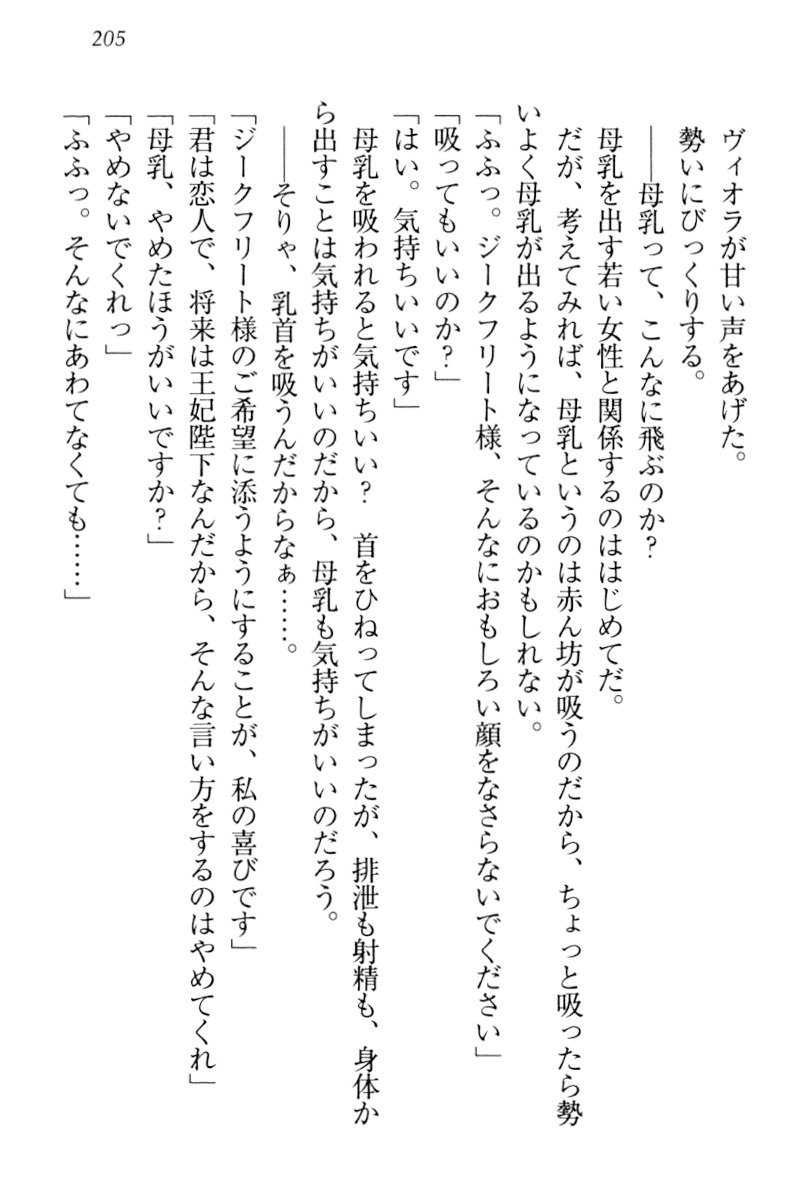 205
ヴィオラが甘い声をあげた。
――母乳って、こんなに飛ぶのか?
勢いにびっくりする。
母乳を出す若い女性と関係するのははじめてだ。
だが、考えてみれば、母乳というのは赤ん坊が吸うのだから、ちょっと吸ったら勢
いよく母乳が出るようになっているのかもしれない。
「ふふっ。ジークフリート様、そんなにおもしろい顔をなさらないでください」
「吸ってもいいのか?」
「はい。気持ちいいです」
母乳を吸われると気持ちいい? 首をひねってしまったが、排泄も射精も、身体か
ら出すことは気持ちがいいのだから、母乳も気持ちがいいのだろう。
――そりゃ、乳首を吸うんだからなぁ……。
「ジークフリート様のご希望に添うようにすることが、私の喜びです」
「君は恋人で、将来は王妃陛下なんだから、そんな言い方をするのはやめてくれ」
「母乳、やめたほうがいいですか?」
「やめないでくれっ」
「ふふっ。そんなにあわてなくても……」